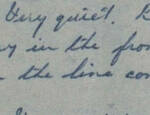 Very quiet.
in the fron
the line con